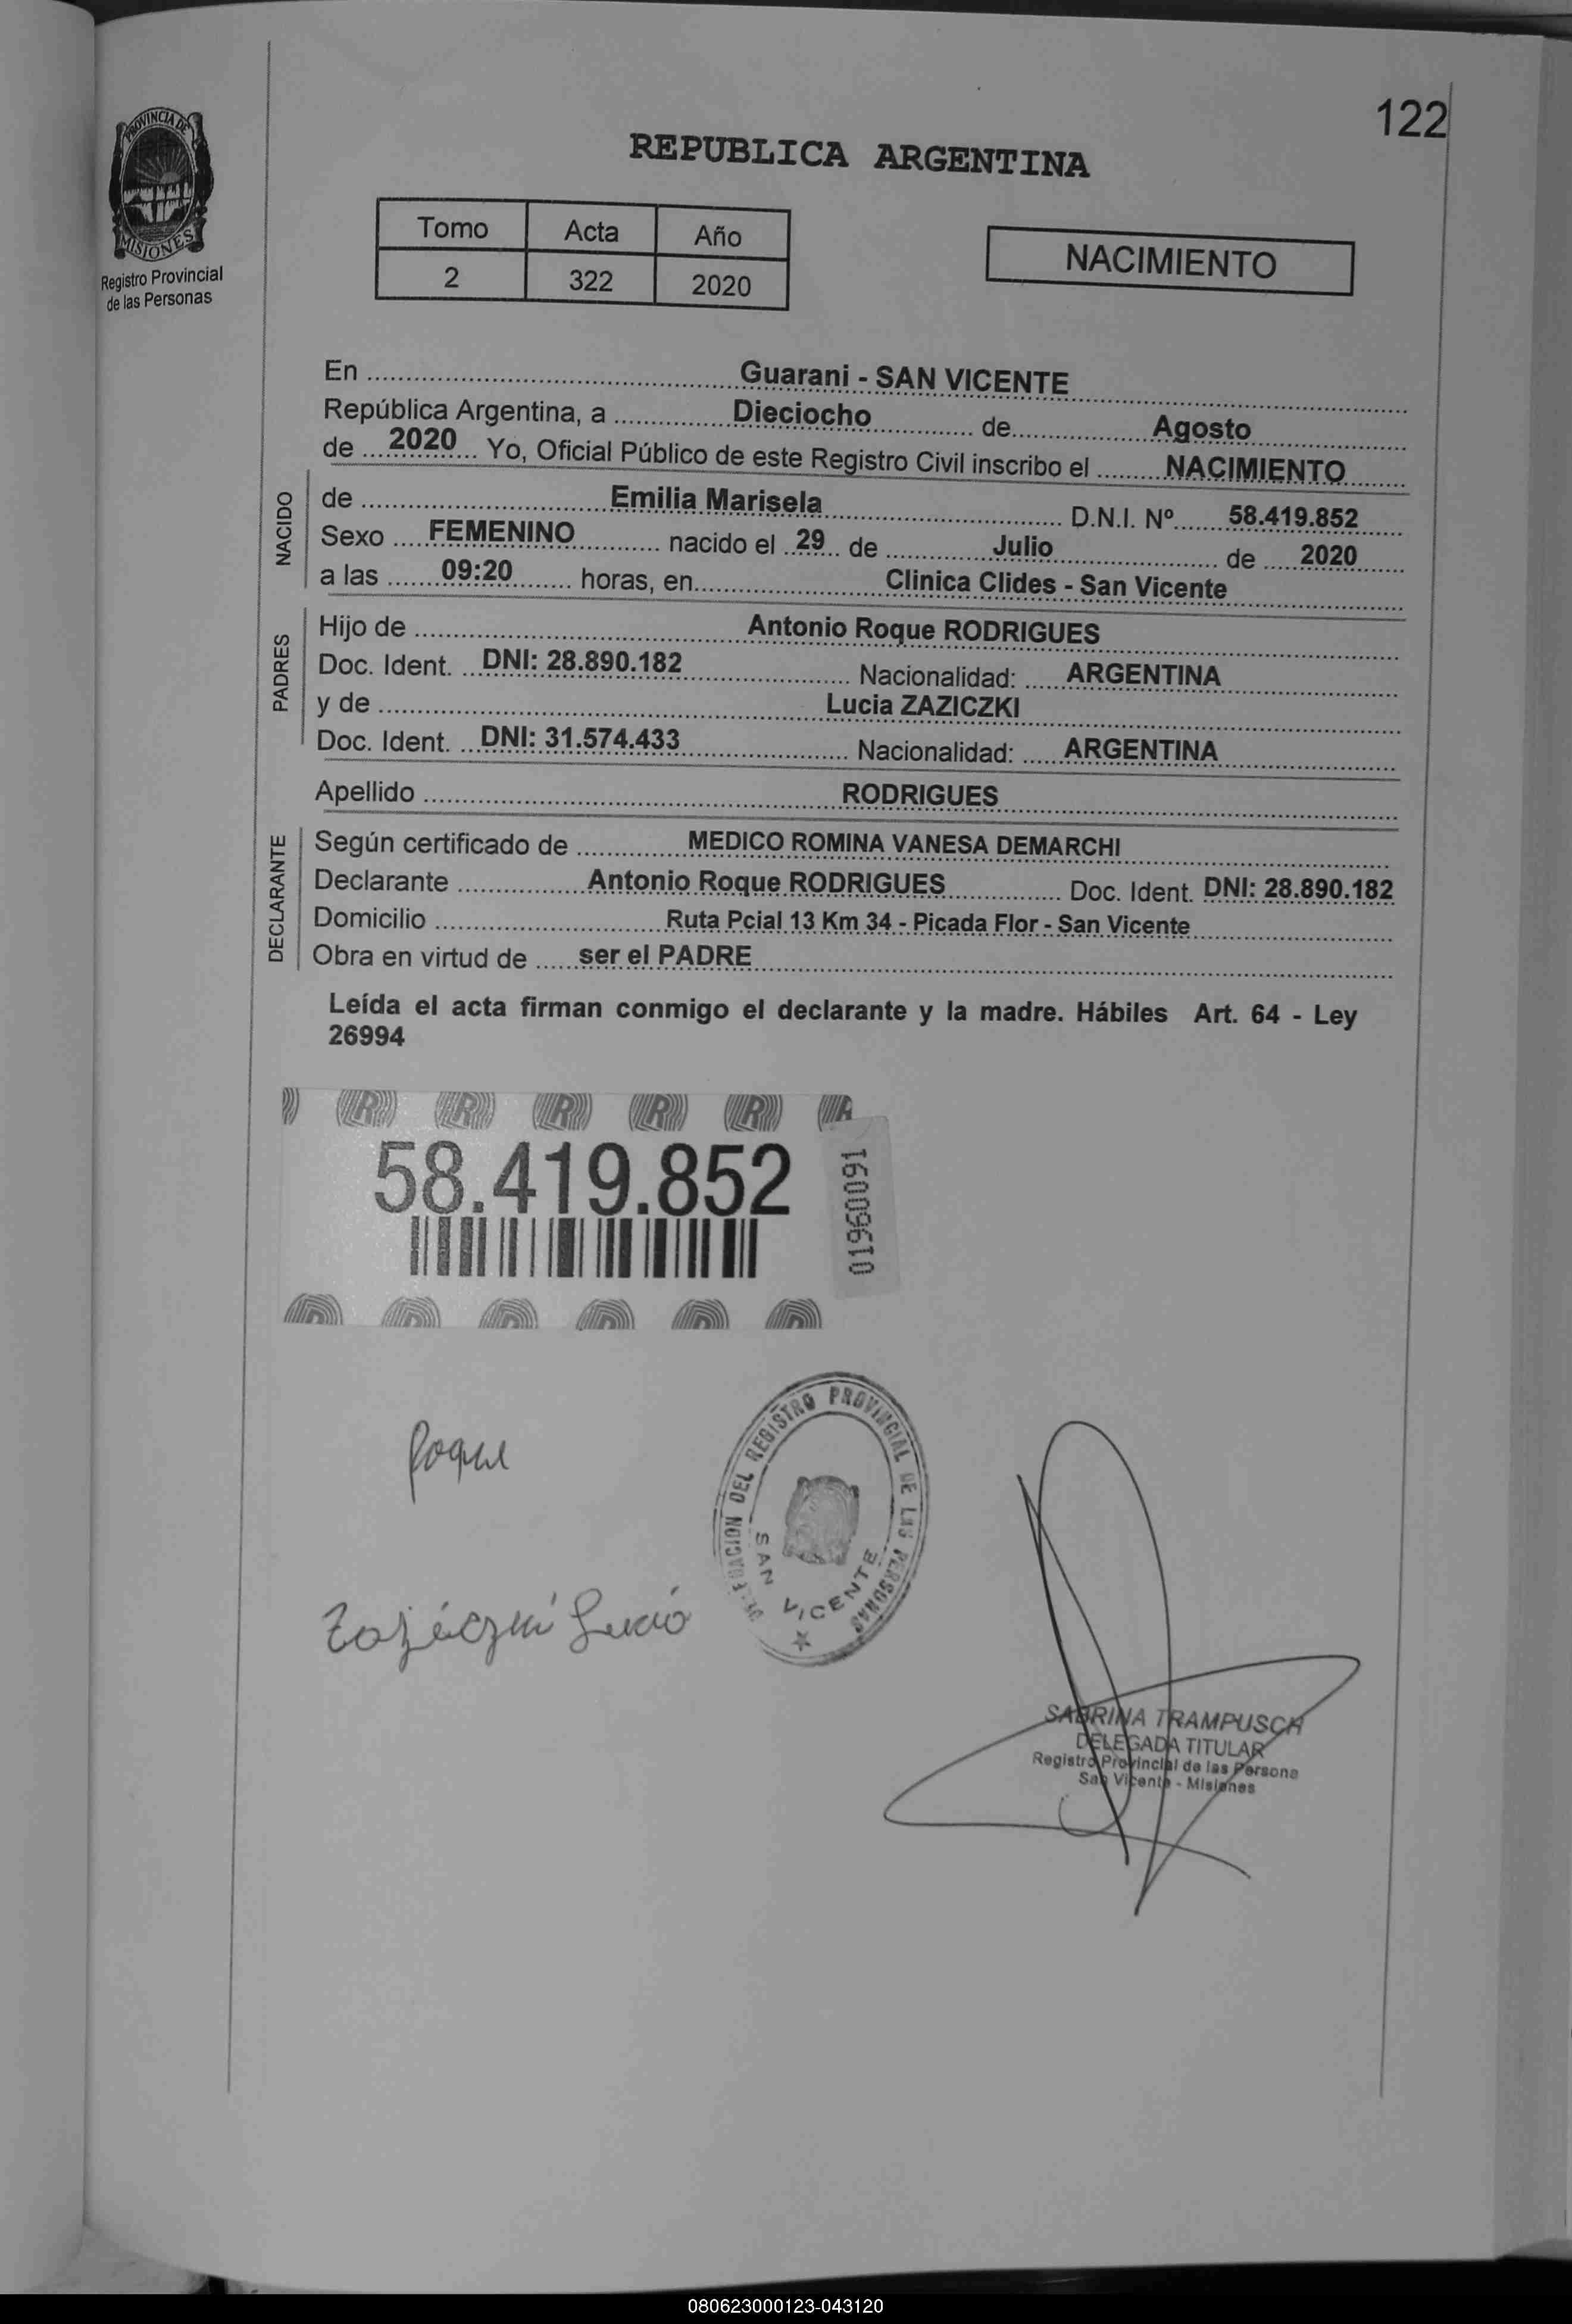 122
PROVINCIA DE
MISIONES
Registro Provincial
de las Personas
REPUBLICA ARGENTINA
Tomo Acta Año
2 322 2020
NACIMIENTO
En Guarani - SAN VICENTE
República Argentina, a Dieciocho de Agosto
de 2020 Yo, Oficial Público de este Registro Civil inscribo el NACIMIENTO
NACIDO
de Emilia Marisela D.N.I. Nº 58.419.852
Sexo FEMENINO nacido el 29 de Julio de 2020
a las 09:20 horas, en Clinica Clides - San Vicente
PADRES
Hijo de Antonio Roque RODRIGUES
Doc. Ident. DNI: 28.890.182 Nacionalidad: ARGENTINA
y de Lucia ZAZICZKI
Doc. Ident. DNI: 31.574.433 Nacionalidad: ARGENTINA
Apellido RODRIGUES
DECLARANTE
Según certificado de MEDICO ROMINA VANESA DEMARCHI
Declarante Antonio Roque RODRIGUES Doc. Ident. DNI: 28.890.182
Domicilio Ruta Pcial 13 Km 34 - Picada Flor - San Vicente
Obra en virtud de ser el PADRE
Leída el acta firman conmigo el declarante y la madre. Hábiles Art. 64 - Ley
26994
58.419.852
01960091
Roque
DEL REGISTRO PROVINCIAL DE LAS PERSONAS
SAN VICENTE
Lucia
SABRINA TRAMPUSCH
DELEGADA TITULAR
Registro Provincial de las Persona
San Vicente - Misiones
080623000123-043120